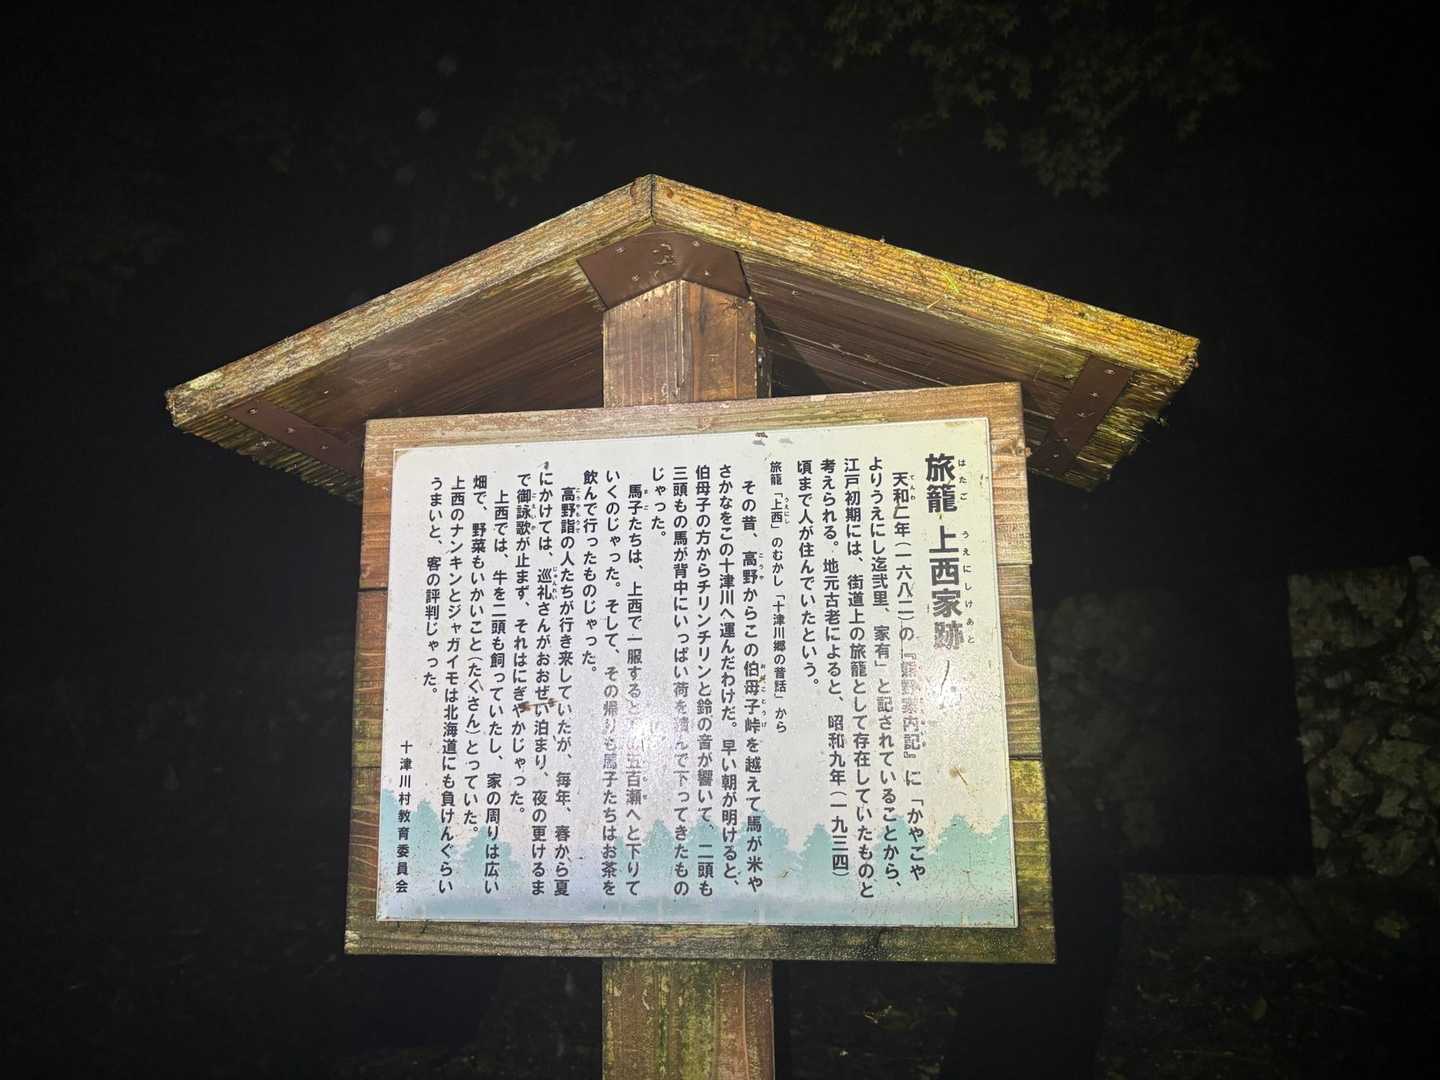 旅籠 上西家跡
はたご うえにしけあと
天和二年(一六八二)の『熊野案内記』に「かやごや
てんわ
よりうえにし迄弐里、家有」と記されていることから、
江戸初期には、街道上の旅籠として存在していたものと
考えられる。地元古老によると、昭和九年(一九三四)
頃まで人が住んでいたという。
旅籠「上西」のむかし「十津川郷の昔話」から
うえにし
その昔、高野からこの伯母子峠を越えて馬が米や
こうや おばことうげ
さかなをこの十津川へ運んだわけだ。早い朝が明けると、
伯母子の方からチリンチリンと鈴の音が響いて、二頭も
三頭もの馬が背中にいっぱい荷を積んで下ってきたもの
じゃった。
馬子たちは、上西で一服すると五百瀬へと下りて
まご
いくのじゃった。そして、その帰りも馬子たちはお茶を
飲んで行ったものじゃった。
高野詣の人たちが行き来していたが、毎年、春から夏
こうやもうで
にかけては、巡礼さんがおおぜい泊まり、夜の更けるま
じゅんれい
で御詠歌が止まず、それはにぎやかじゃった。
ごえいか
上西では、牛を二頭も飼っていたし、家の周りは広い
畑で、野菜もいかいこと(たくさん)とっていた。
上西のナンキンとジャガイモは北海道にも負けんぐらい
うまいと、客の評判じゃった。
十津川村教育委員会